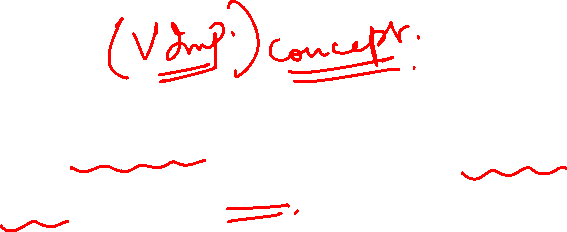 (V Imp.) concept.